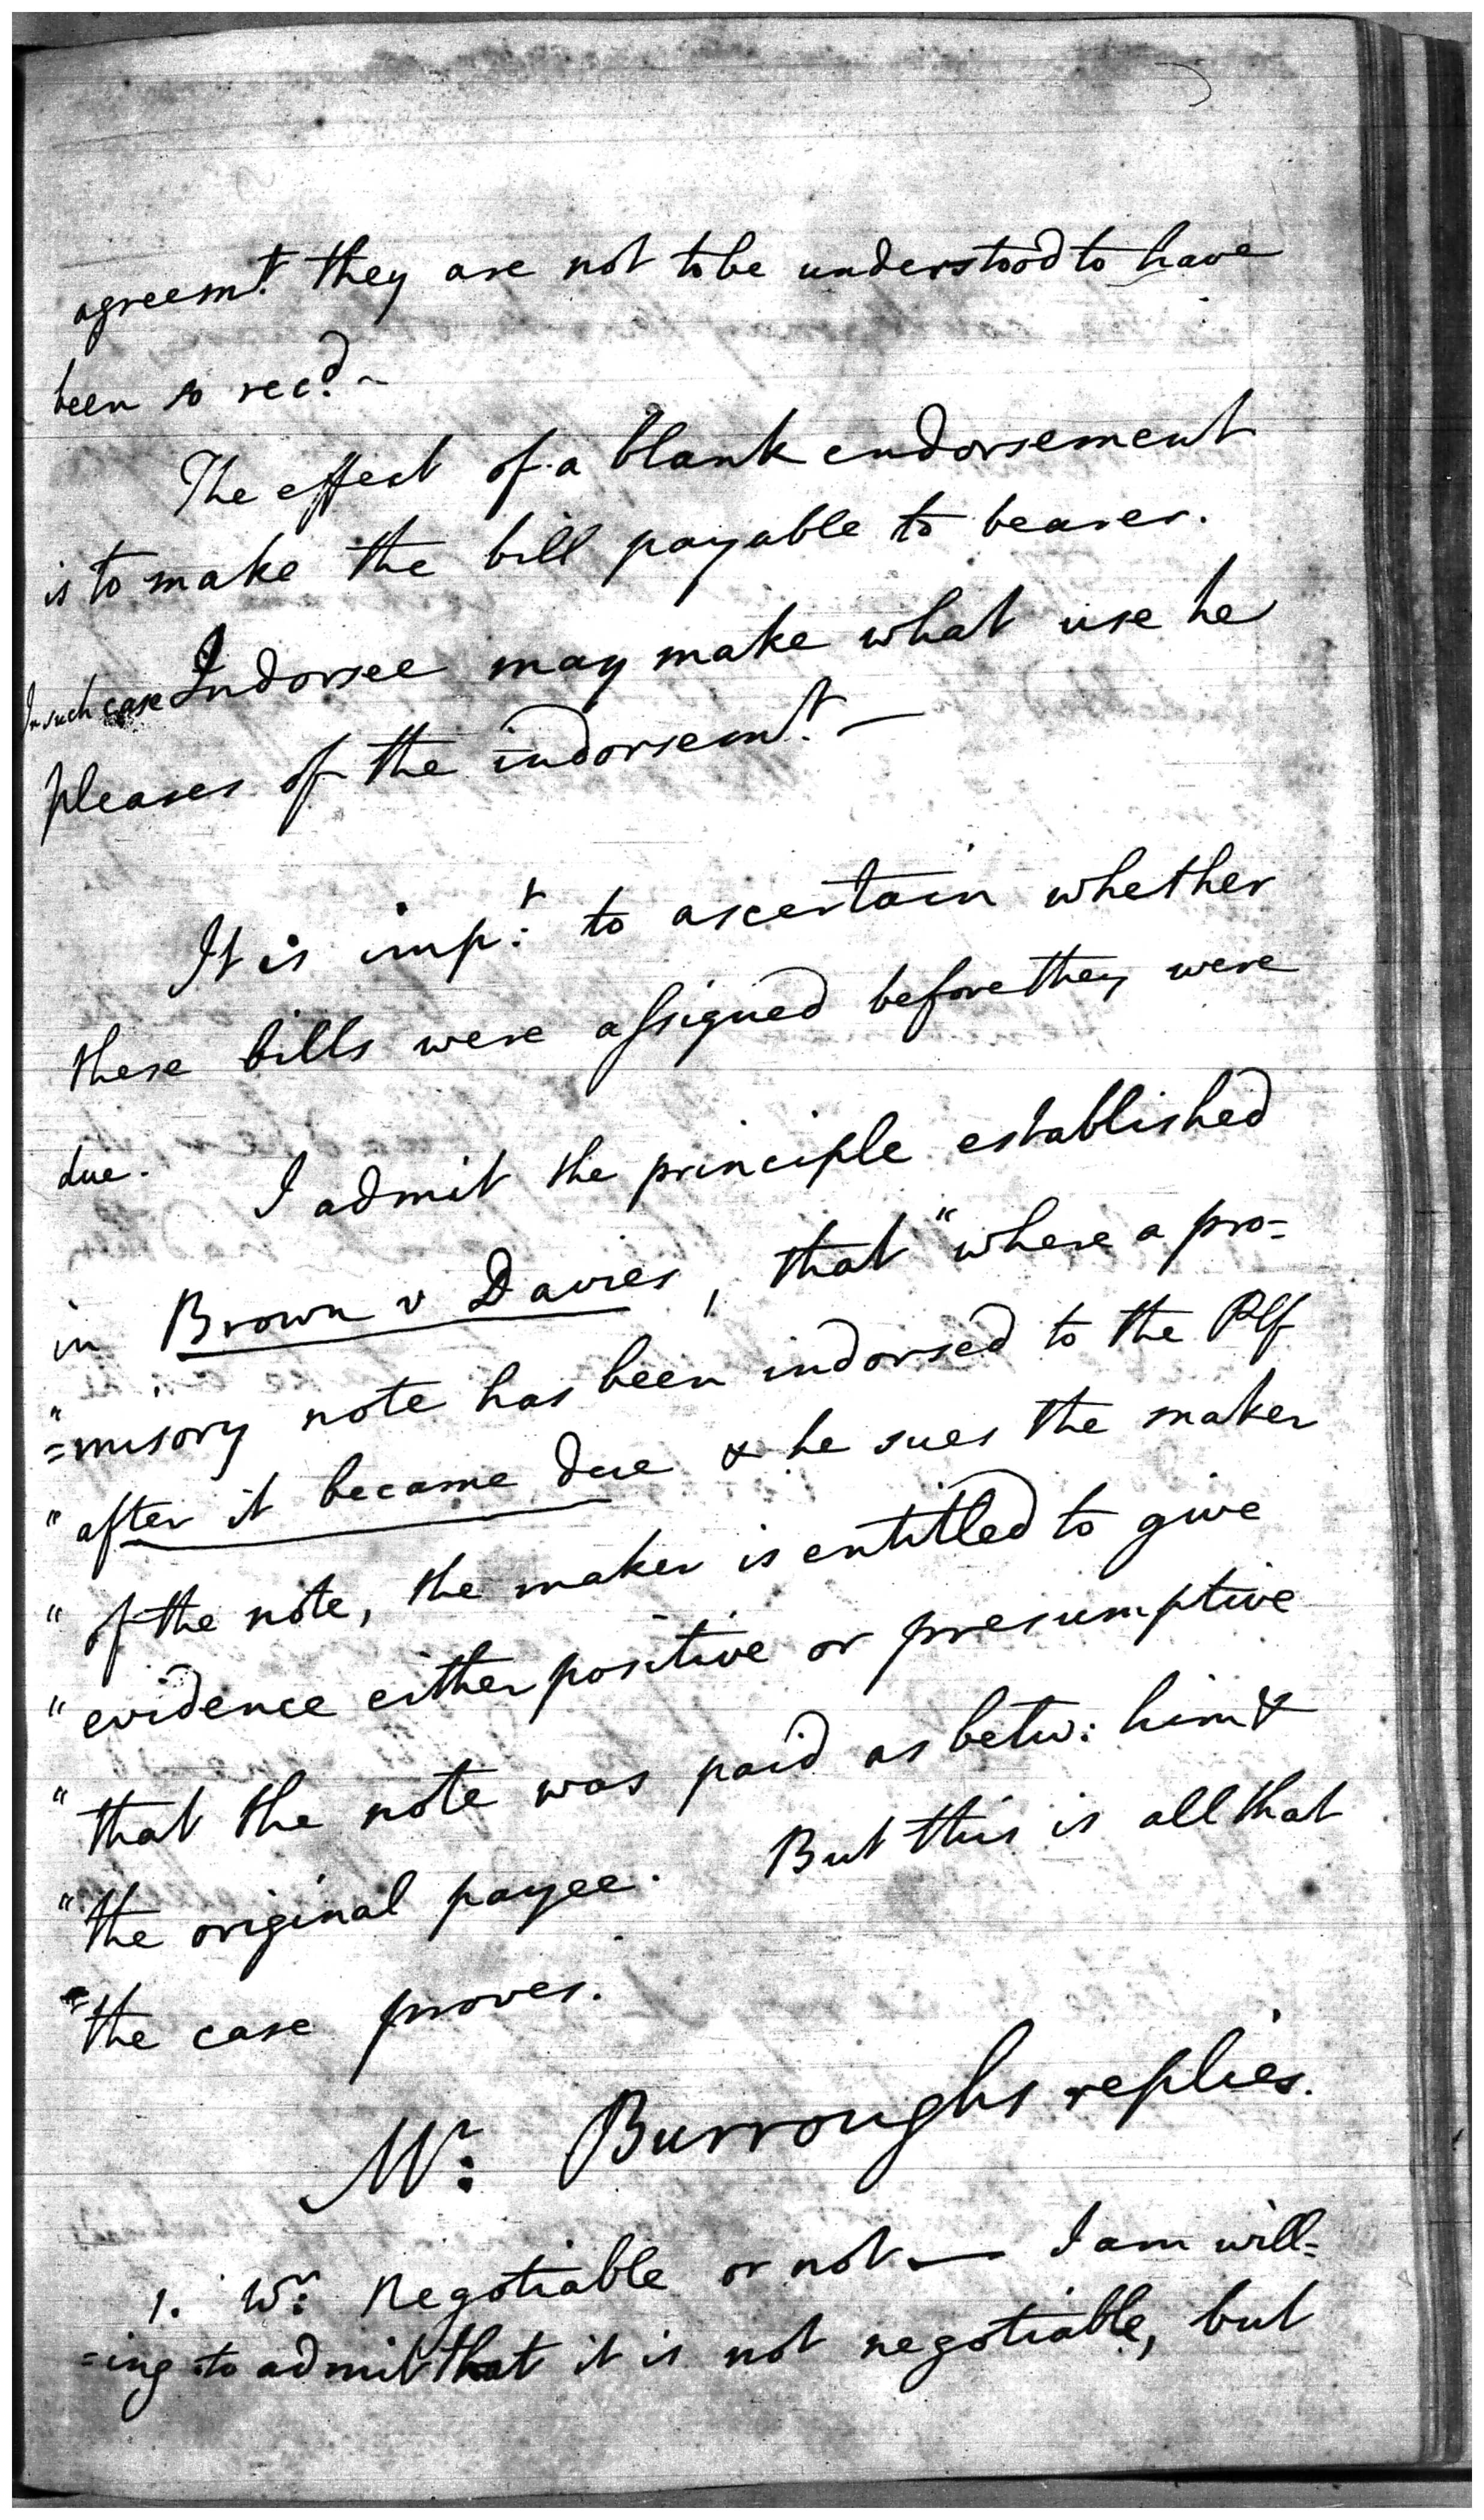 agreemt. they are not to be understood to have
been so recd. -
The effect of a blank endorsement
is to make the bill payable to bearer.
In such case Indorsee may make what use he
pleases of the indorsemt. —
It is impt: to ascertain whether
these bills were assigned before they were
due. I admit the principle established
in Brown v Davies, that "where a pro=
"=misory note has been indorsed to the Plf
"after it became due & he sues the maker
"of the note, the maker is entitled to give
"evidence either positive or presumptive
"that the note was paid as betw: him &
"the original payee. But this is all that
"the case proves.
Mr: Burroughs replies.
1. Wr: negotiable or not — I am will=
=ing to admit that it is not negotiable, but